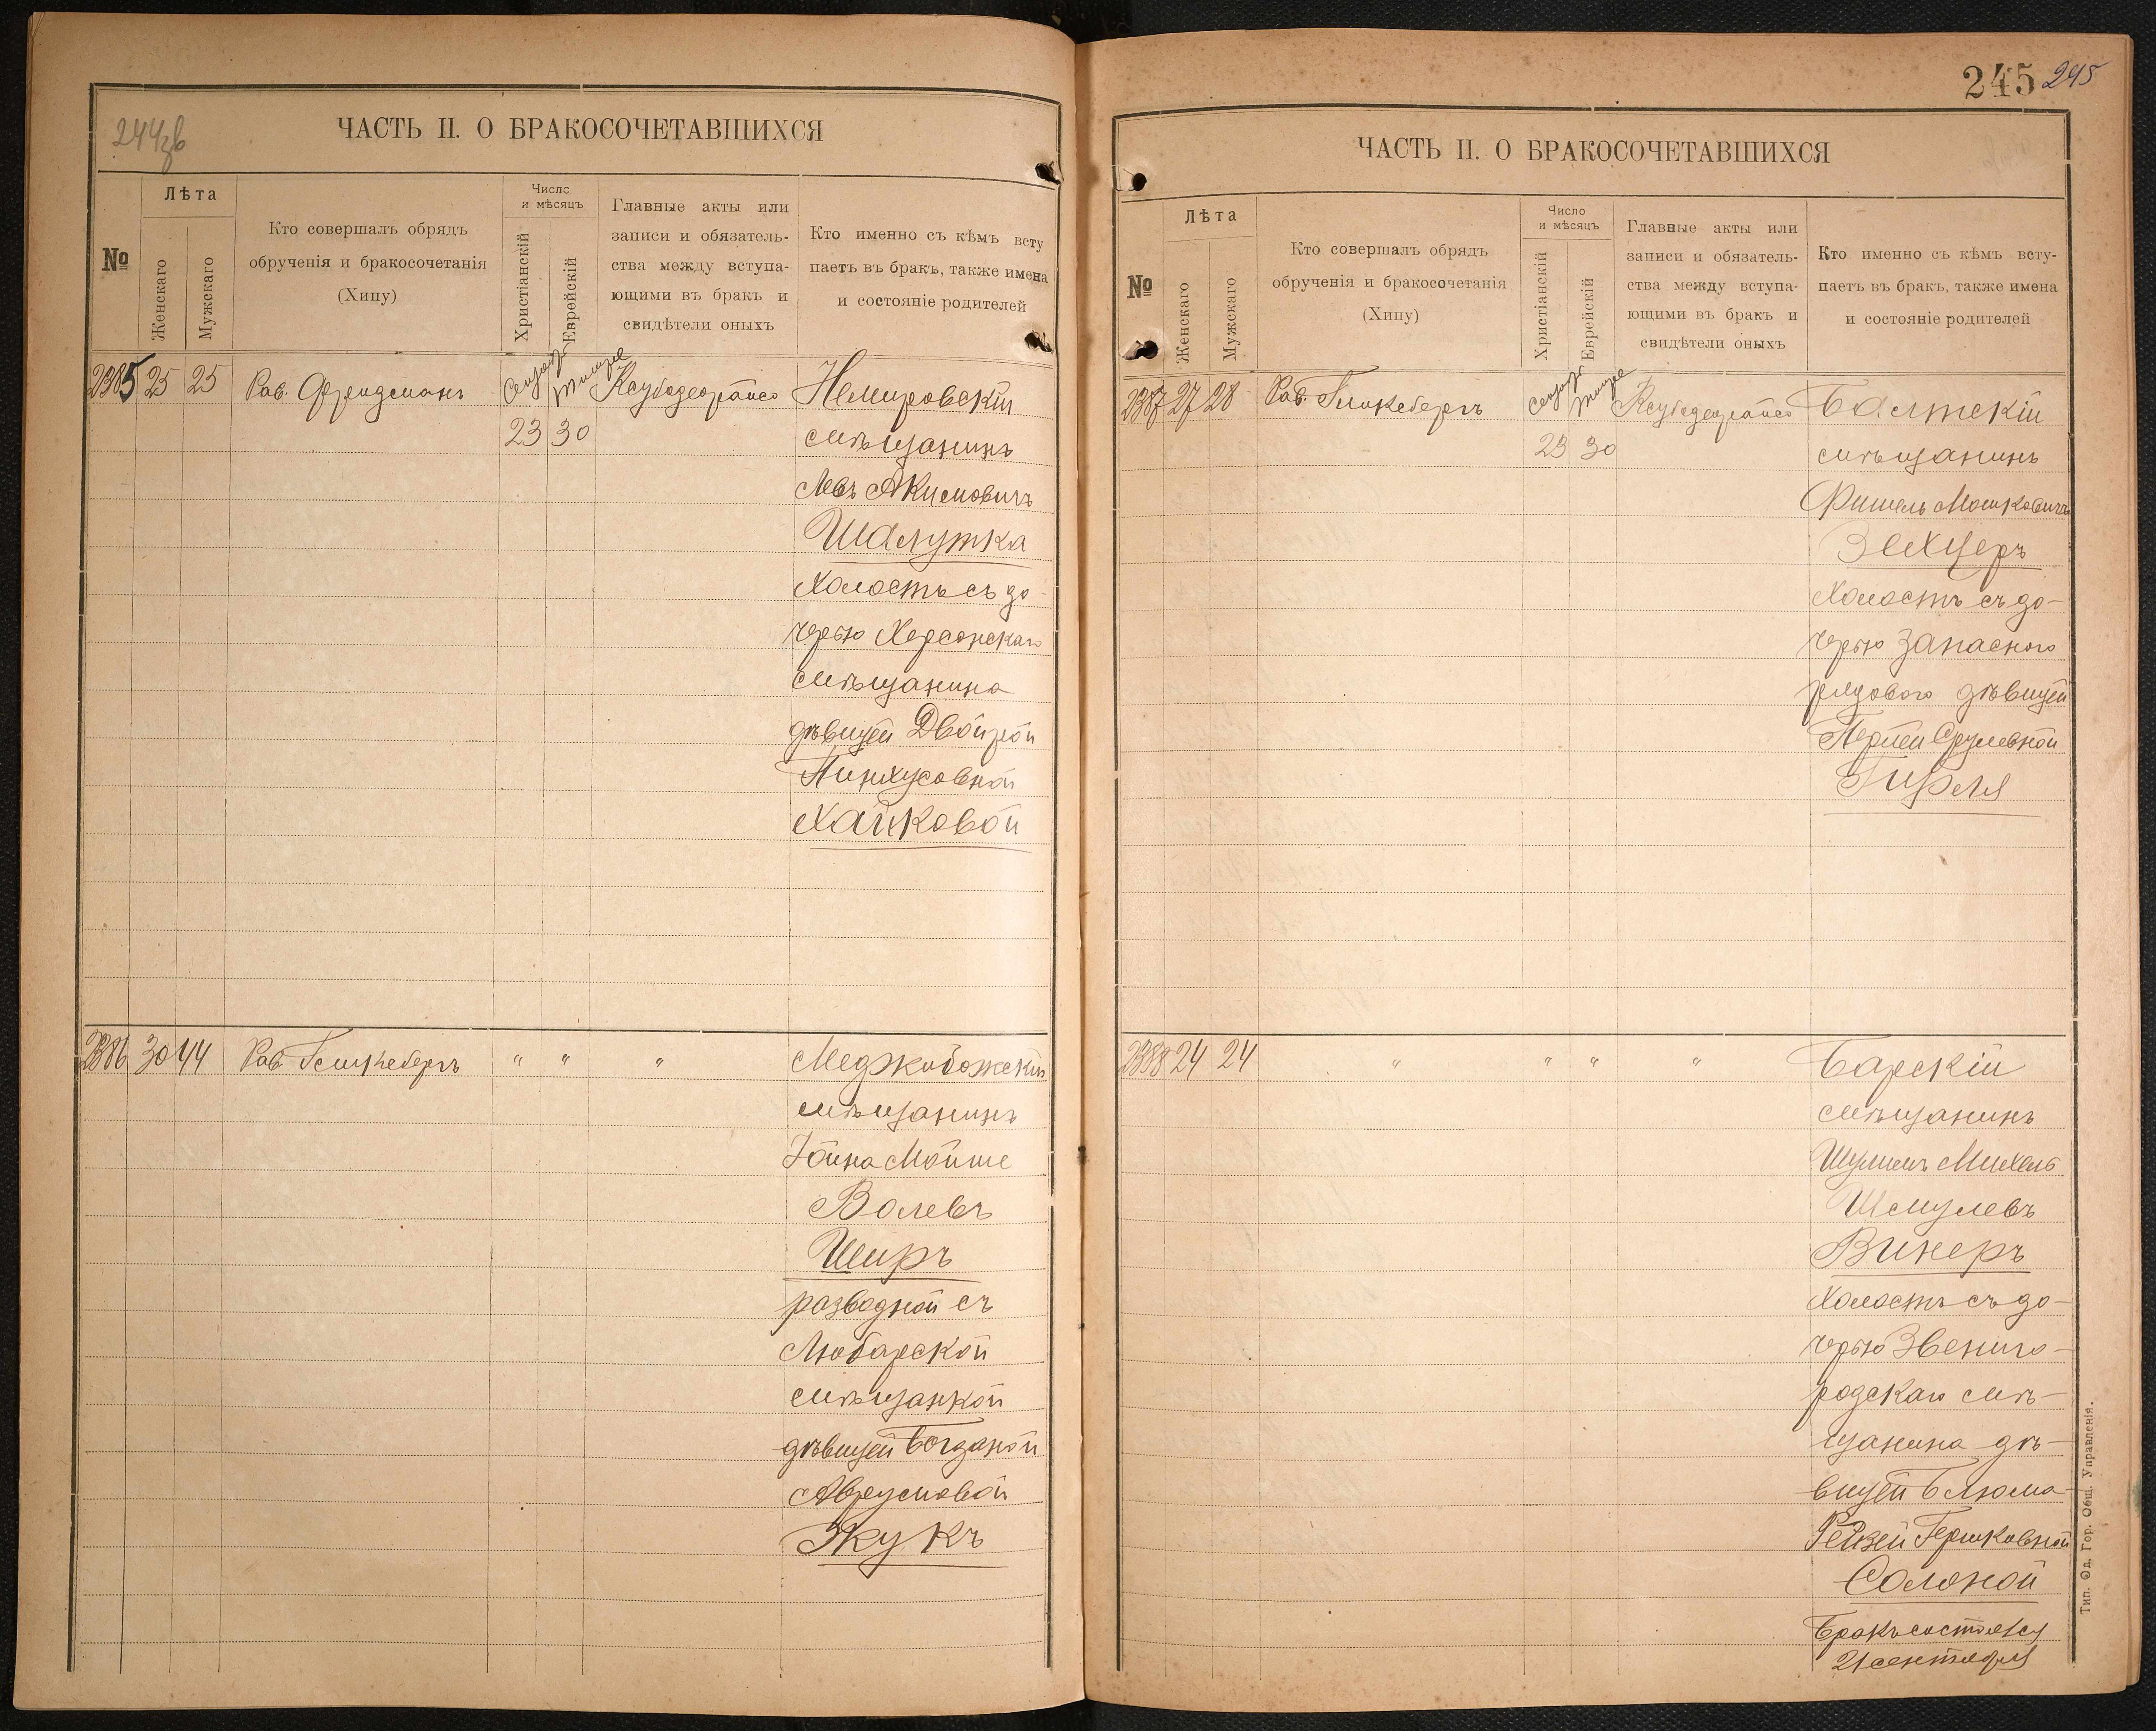 244зв
ЧАСТЬ II. О БРАКОСОЧЕТАВШИХСЯ
№
Лѣта
Женскаго
Мужскаго
Кто совершалъ обрядъ
обрученія и бракосочетанія
(Хипу)
Число
и мѣсяцъ
Христіанскій
Еврейскій
Главные акты или
записи и обязатель-
ства между вступа-
ющими въ бракъ и
свидѣтели оныхъ
Кто именно съ кѣмъ всту
паетъ въ бракъ, также имена
и состояніе родителей
2385 25 25 Рав. Фридманъ
23 30
Немировскій
мѣщанинъ
Левъ Акимовичъ
Шалутка
холостъ съ до-
черью Херсонскаго
мѣщанина
дѣвицей Двойрой
Пинхусовной
Хайковой
2386 30 44 Рав. " " "
Меджибожскій
мѣщанинъ
Іойна Мойше
Волевъ
Широ
разводной съ
Любарской
мѣщанкой
дѣвицей Богданой
Аврумовой
Жукъ
245 245
ЧАСТЬ II. О БРАКОСОЧЕТАВШИХСЯ
№
Лѣта
Женскаго
Мужскаго
Кто совершалъ обрядъ
обрученія и бракосочетанія
(Хипу)
Число
и мѣсяцъ
Христіанскій
Еврейскій
Главные акты или
записи и обязатель-
ства между вступа-
ющими въ бракъ и
свидѣтели оныхъ
Кто именно съ кѣмъ всту-
паетъ въ бракъ, также имена
и состояніе родителей
2387 27 28 Рав.
23 30
Балтскій
мѣщанинъ
Фишель Мошковичъ
Зехцеръ
холостъ съ до-
черью запасного
рядового дѣвицей
Перлей Срулевной
Гирля
2388 24 24 " " " "
Барскій
мѣщанинъ
Михель
Шмулевъ
Винеръ
холостъ съ до-
черью Звениго-
родскаго мѣ-
щанина дѣ-
вицей Блюма-
Рейзей Гершковной
Солоной
Бракъ состоялся
21 сентября
Тип. Од. Гор. Общ. Управленія.